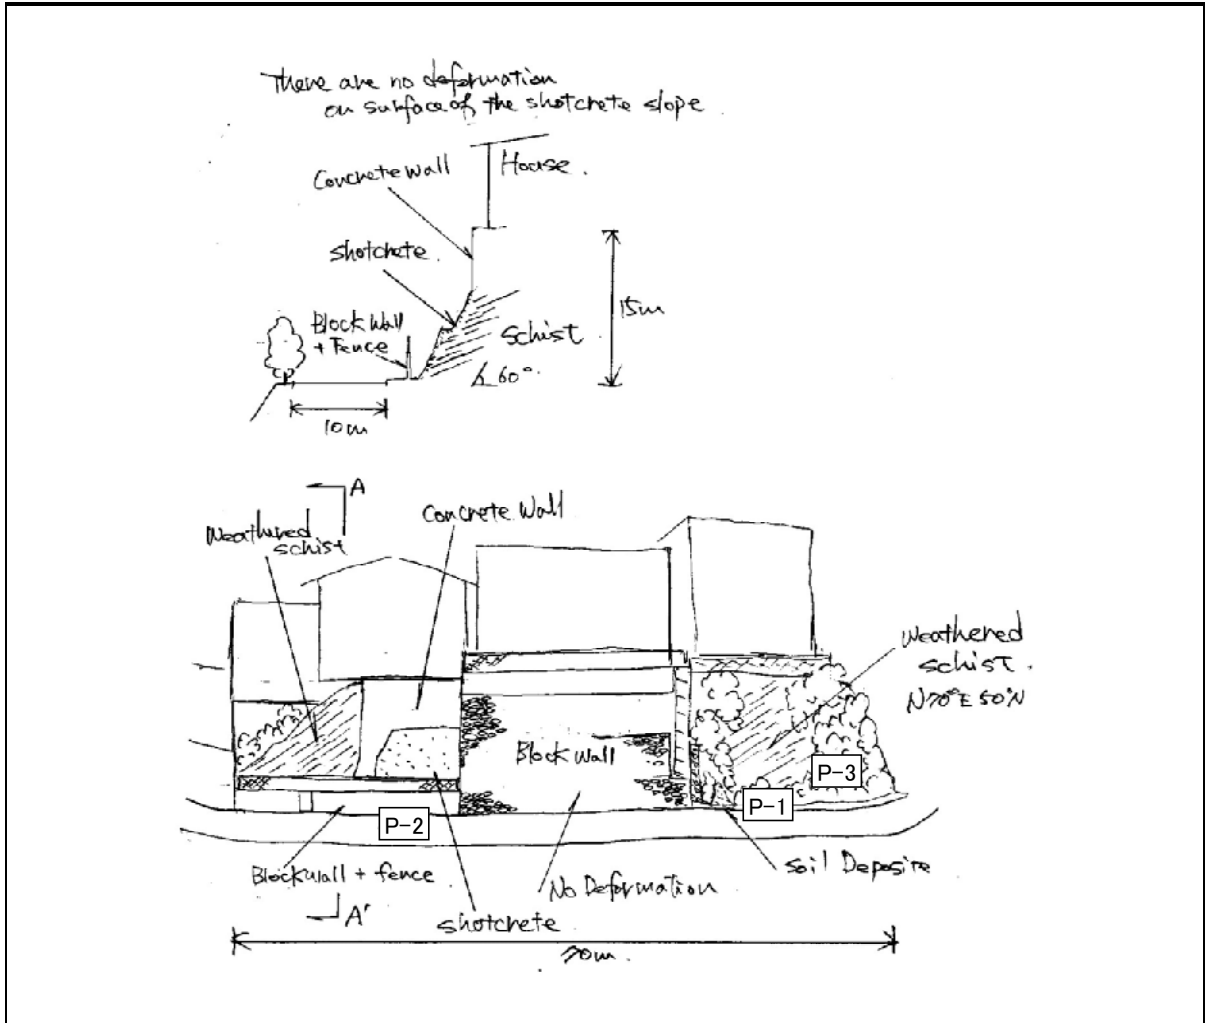 There are no deformation
on surface of the shotcrete slope
Concrete wall
House.
shotcrete.
Block Wall
+ Fence
Schist
60°.
15m
10m
A
Weathered
schist
Concrete Wall
Weathered
schist.
N70°E 50°N
Block wall
P-3
P-1
P-2
Soil Deposite
Blockwall + fence.
No Deformation
A'
shotcrete.